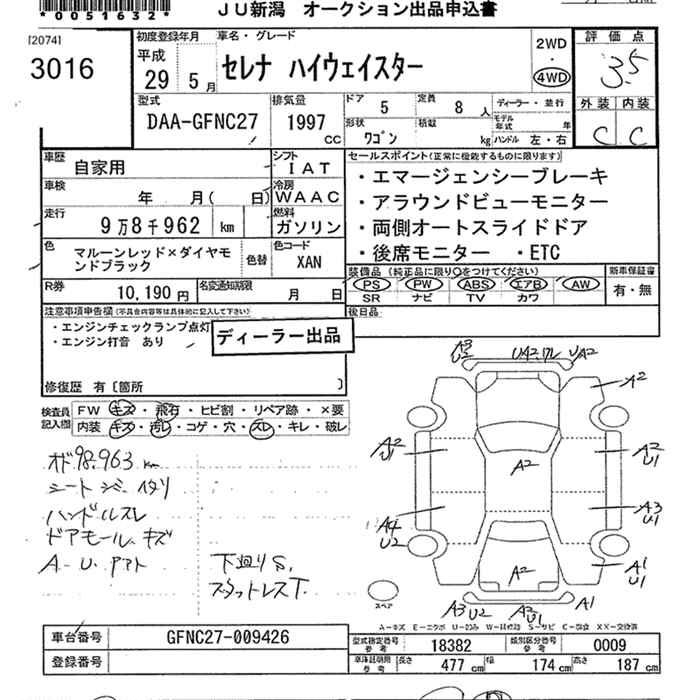 *0051632*
JU新潟 オークション出品申込書
[2074]
3016
初度登録年月
平成
29 5 月
車名・グレード
セレナ ハイウェイスター
2WD
・
4WD
評価点
3.5
外装 内装
C C
型式
DAA-GFNC27
排気量
1997
cc
ドア
5
定員
8 人
形状
ワゴン
積載
kg
ディーラー・並行
モデル年式 年
ハンドル 左・右
車歴
自家用
シフト
IAT
車検
年 月( 日)
冷房
WAAC
走行
9万8千962 km
燃料
ガソリン
色
マルーンレッド×ダイヤモ
ンドブラック
色替
色コード
XAN
R券
10,190 円
名変通知期限
月 日
セールスポイント(正常に機能するものに限ります)
・エマージェンシーブレーキ
・アラウンドビューモニター
・両側オートスライドドア
・後席モニター ・ETC
装備品 (純正品に限り○をつけてください)
PS PW ABS エアB AW
SR ナビ TV カワ
新車保証書
有・無
後日品
注意事項申告欄(不具合内容等は具体的に記入して下さい)
・エンジンチェックランプ点灯
・エンジン打音 あり
ディーラー出品
修復歴 有〔箇所 〕
検査員
記入欄
FW キズ・飛石・ヒビ割・リペア跡・×要
内装 キズ・汚レ・コゲ・穴・スレ・キレ・破レ
オド98.963 km
シートシミ・イタリ
ハンドルスレ
ドアモール、キズ
A-U、アリト
下廻りS、
スタットレスT.
A3
U2
UA2,ワレ
UA2
A2
A2
U1
A2
A2
U1
A4
U2
A3
U1
A2
A1
U1
A3 U2
A2
U1
A1
スペア
A―キズ E―エクボ U―凹み W―補修跡 S―サビ C―腐食 XX―交換済
車台番号
GFNC27-009426
登録番号
型式指定番号
参考
18382
類別区分番号
参考
0009
車庫証明用
参考
長さ
477 cm
幅
174 cm
高さ
187 cm